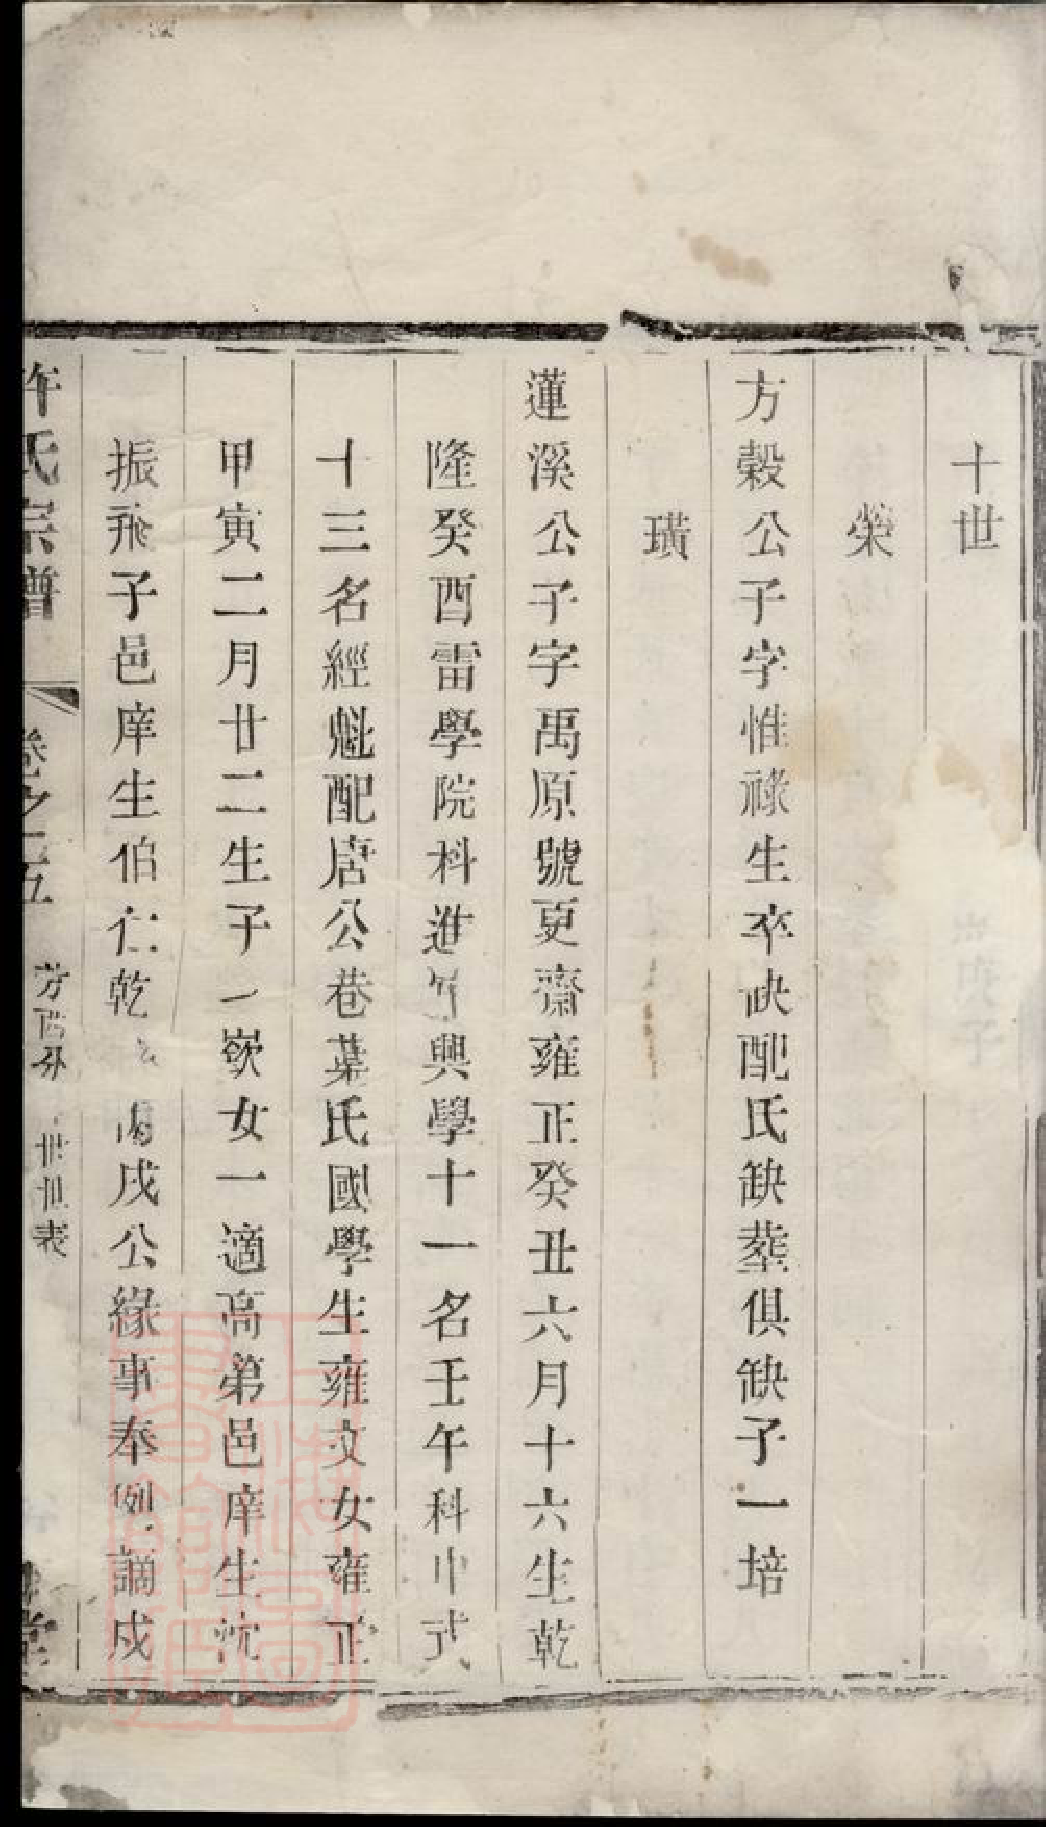 十世
榮
方糓公子字惟祿生卒缺配氏缺塟俱缺子一培
璜
蓮溪公子字禹原號更齋雍正癸丑六月十六生乾
隆癸酉雷學院科進新興學十一名壬午科中式
十三名經魁配唐公巷葉氏國學生雍文女雍正
甲寅二月廿二生子一嶔女一適高第邑庠生沈
振飛子邑庠生伯仁乾 丙戌公緣事奉例謫戍
許氏宗譜
卷之五
世世表
堂
上海圖書館藏